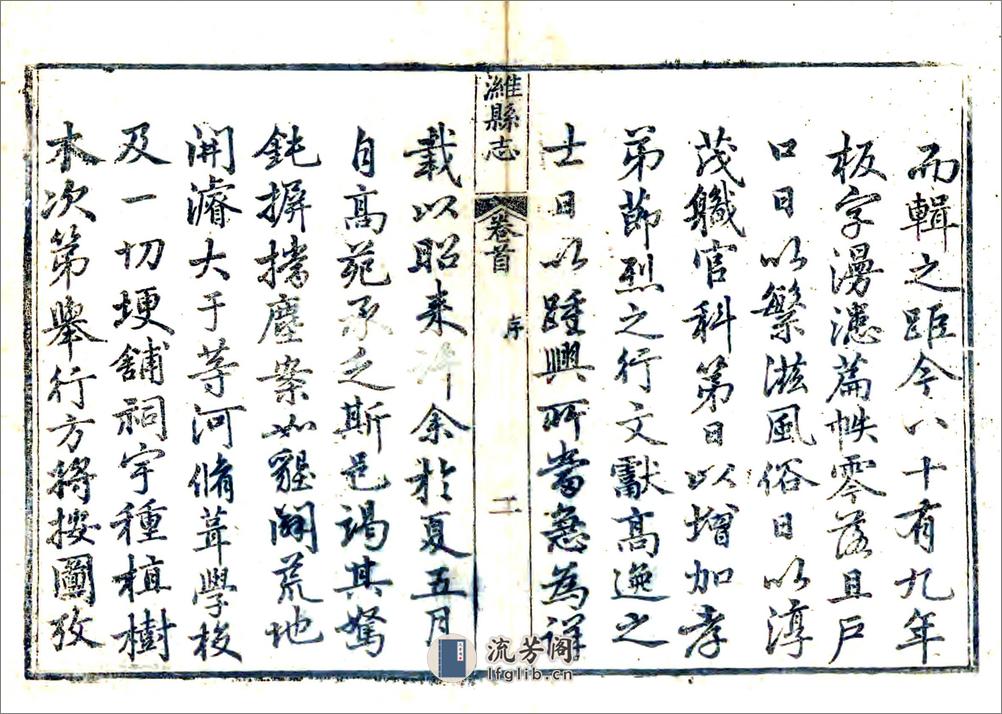 而輯之距今八十有九年
板字漫漶篇帙零落且戶
口日以繁滋風俗日以淳
茂職官科第日以增加孝
弟節烈之行文獻高逸之
士日以踵興所當急為詳
濰縣志
卷首
序
二
載以昭来許余於夏五月
自高苑承乏斯邑竭其駑
鈍摒擋塵案如
開濬大于等河脩葺學校
及一切埂舖祠宇種植樹
木次第舉行方將按圖攷
流芳阁
lfglib.cn